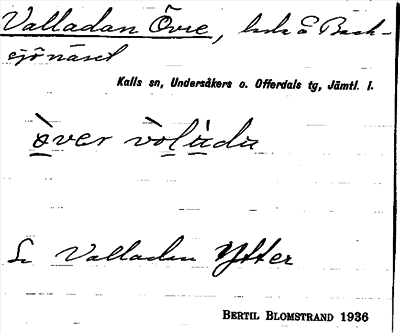 Valladan Övre, beb. å Back-
sjönäset
Kalls sn, Undersåkers o. Offerdals tg, Jämtl. l.
òver vòlùdu
Se Valladan Ytter
BERTIL BLOMSTRAND 1936